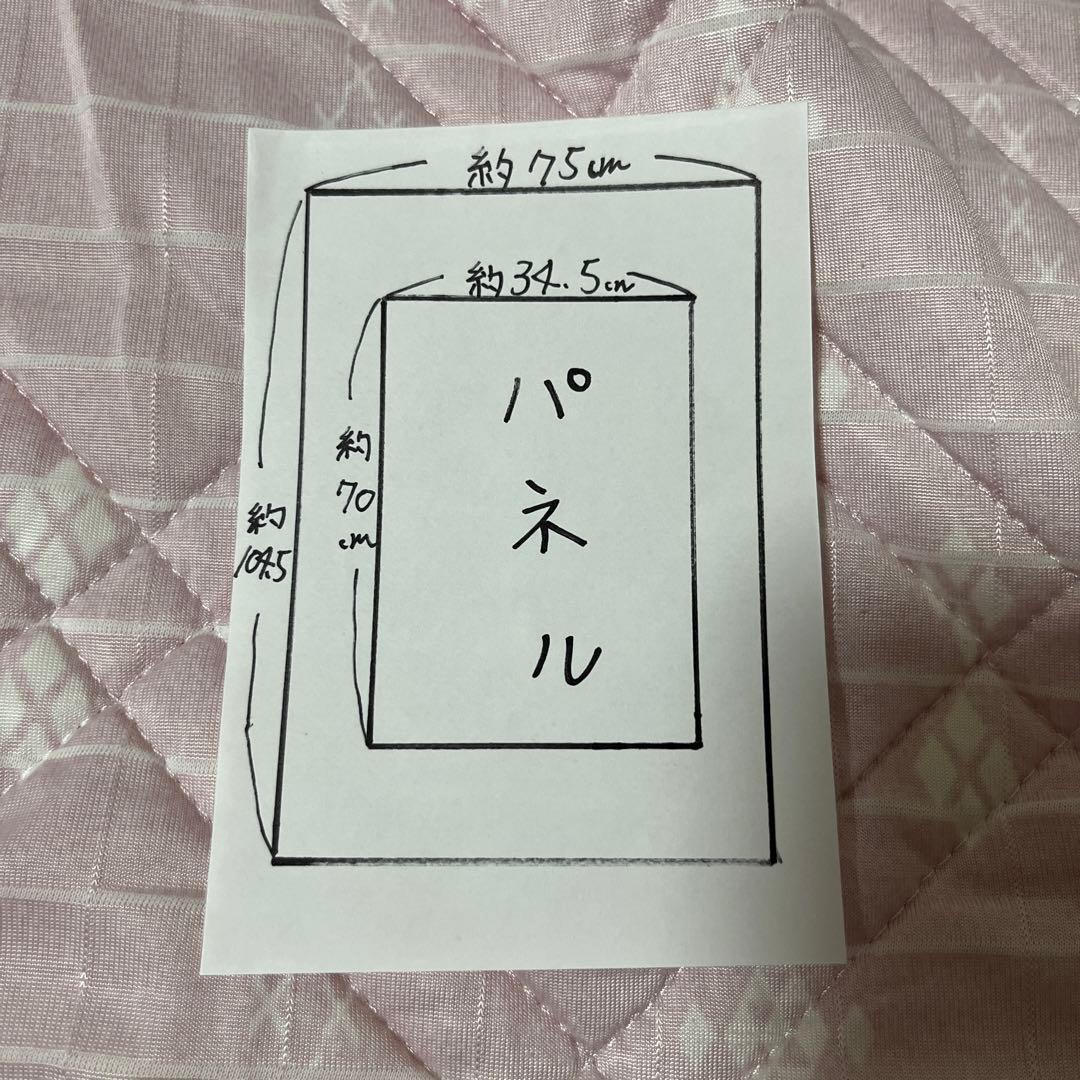 約75cm
約34.5cm
約
70
cm
約
104.5
パ
ネ
ル